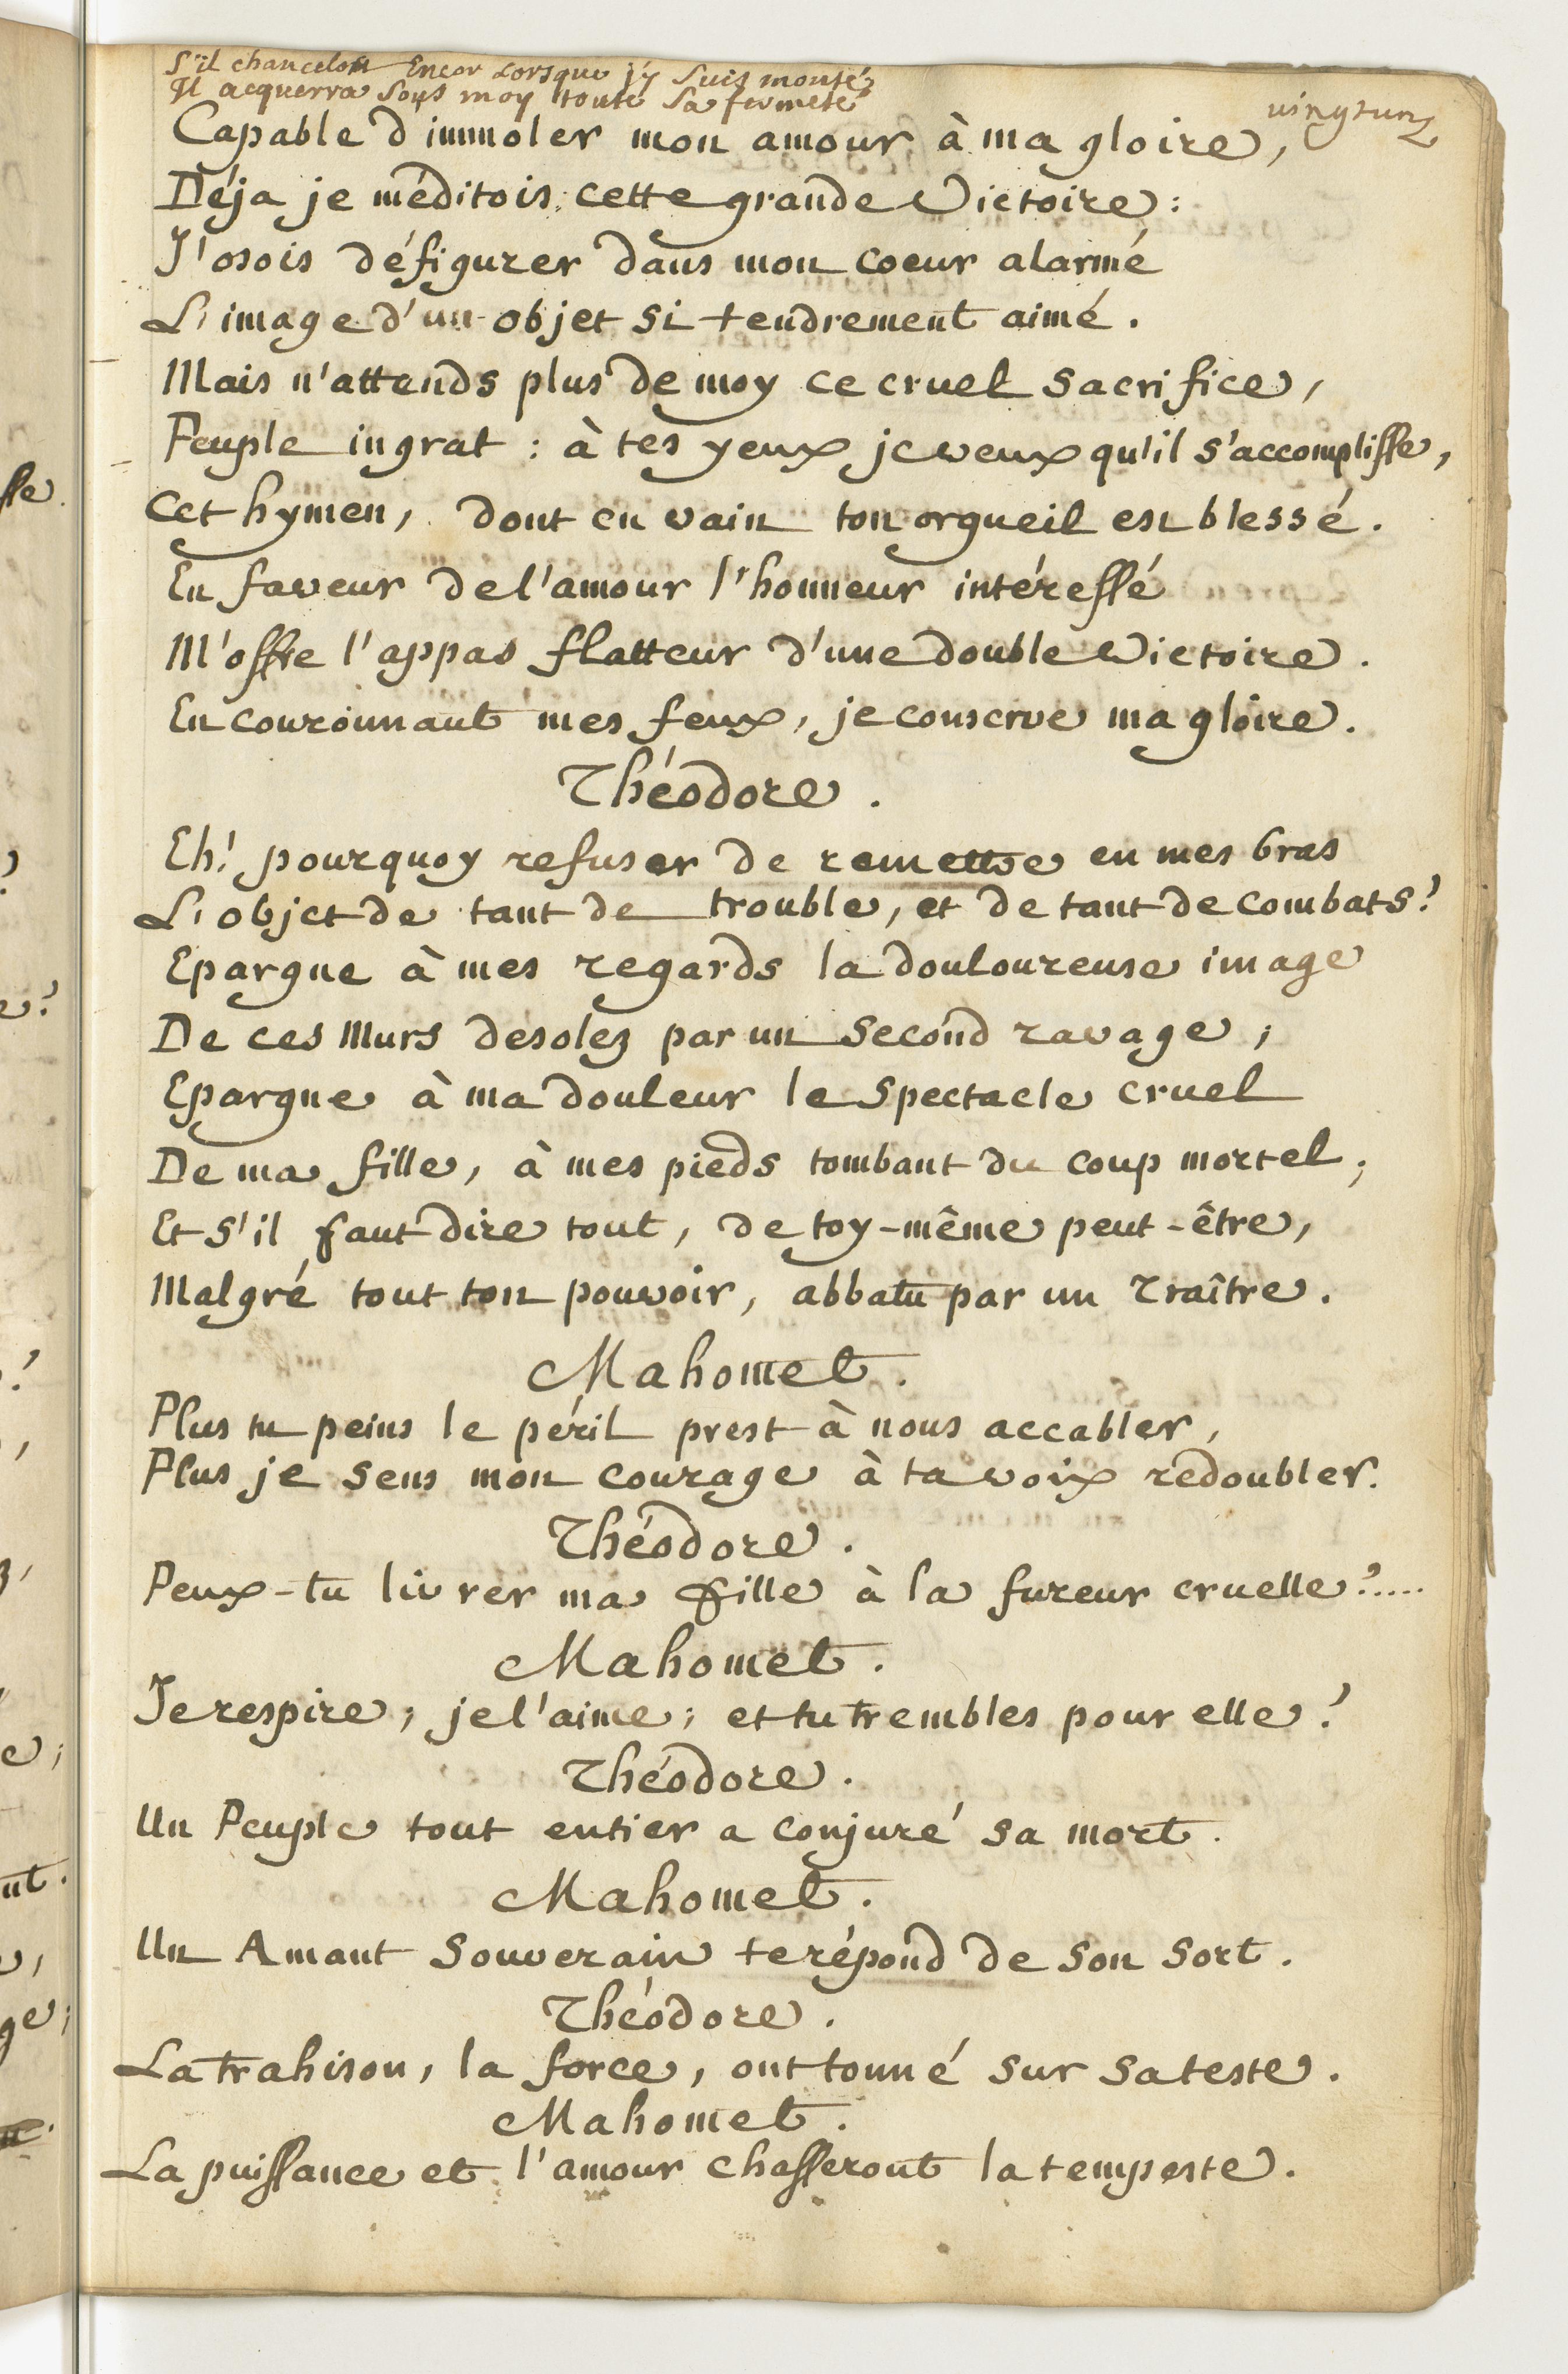 S'il chanceloit Encor Lorsque j'y Suis monté
Il acquerra Sous moy toute Sa fermeté
vingtun
Capable d'immoler mon amour à ma gloire,
Déja je méditois cette grande Victoire :
J'osois défigurer dans mon coeur alarmé
L'image d'un objet si tendrement aimé.
Mais n'attends plus de moy ce cruel sacrifice,
Peuple ingrat : à tes yeux je veux qu'il s'accomplisse,
Cet hymen, dont en vain ton orgueil est blessé.
En faveur de l'amour l'honneur intéressé
M'offre l'appas flatteur d'une double Victoire.
En couronnant mes feux, je conserve ma gloire.
Théodore.
Eh! pourquoy refuser de remettre en mes bras
L'objet de tant de trouble, et de tant de combats?
Epargne à mes regards la douloureuse image
De ces Murs désolez par un second ravage ;
Epargne à ma douleur le spectacle cruel
De ma fille, à mes pieds tombant du coup mortel ;
Et s'il faut dire tout, de toy-même peut-être,
Malgré tout ton pouvoir, abbatu par un Traître.
Mahomet.
Plus tu peins le péril prest à nous accabler,
Plus je sens mon courage à ta voix redoubler.
Théodore.
Peux-tu livrer ma fille à la fureur cruelle?.....
Mahomet.
Je respire ; je l'aime ; et tu trembles pour elle?
Théodore.
Un Peuple tout entier a conjuré sa mort.
Mahomet.
Un Amant souverain te répond de son sort.
Théodore.
La trahison, la force, ont tonné sur sa teste.
Mahomet.
La puissance et l'amour chasseront la tempeste.